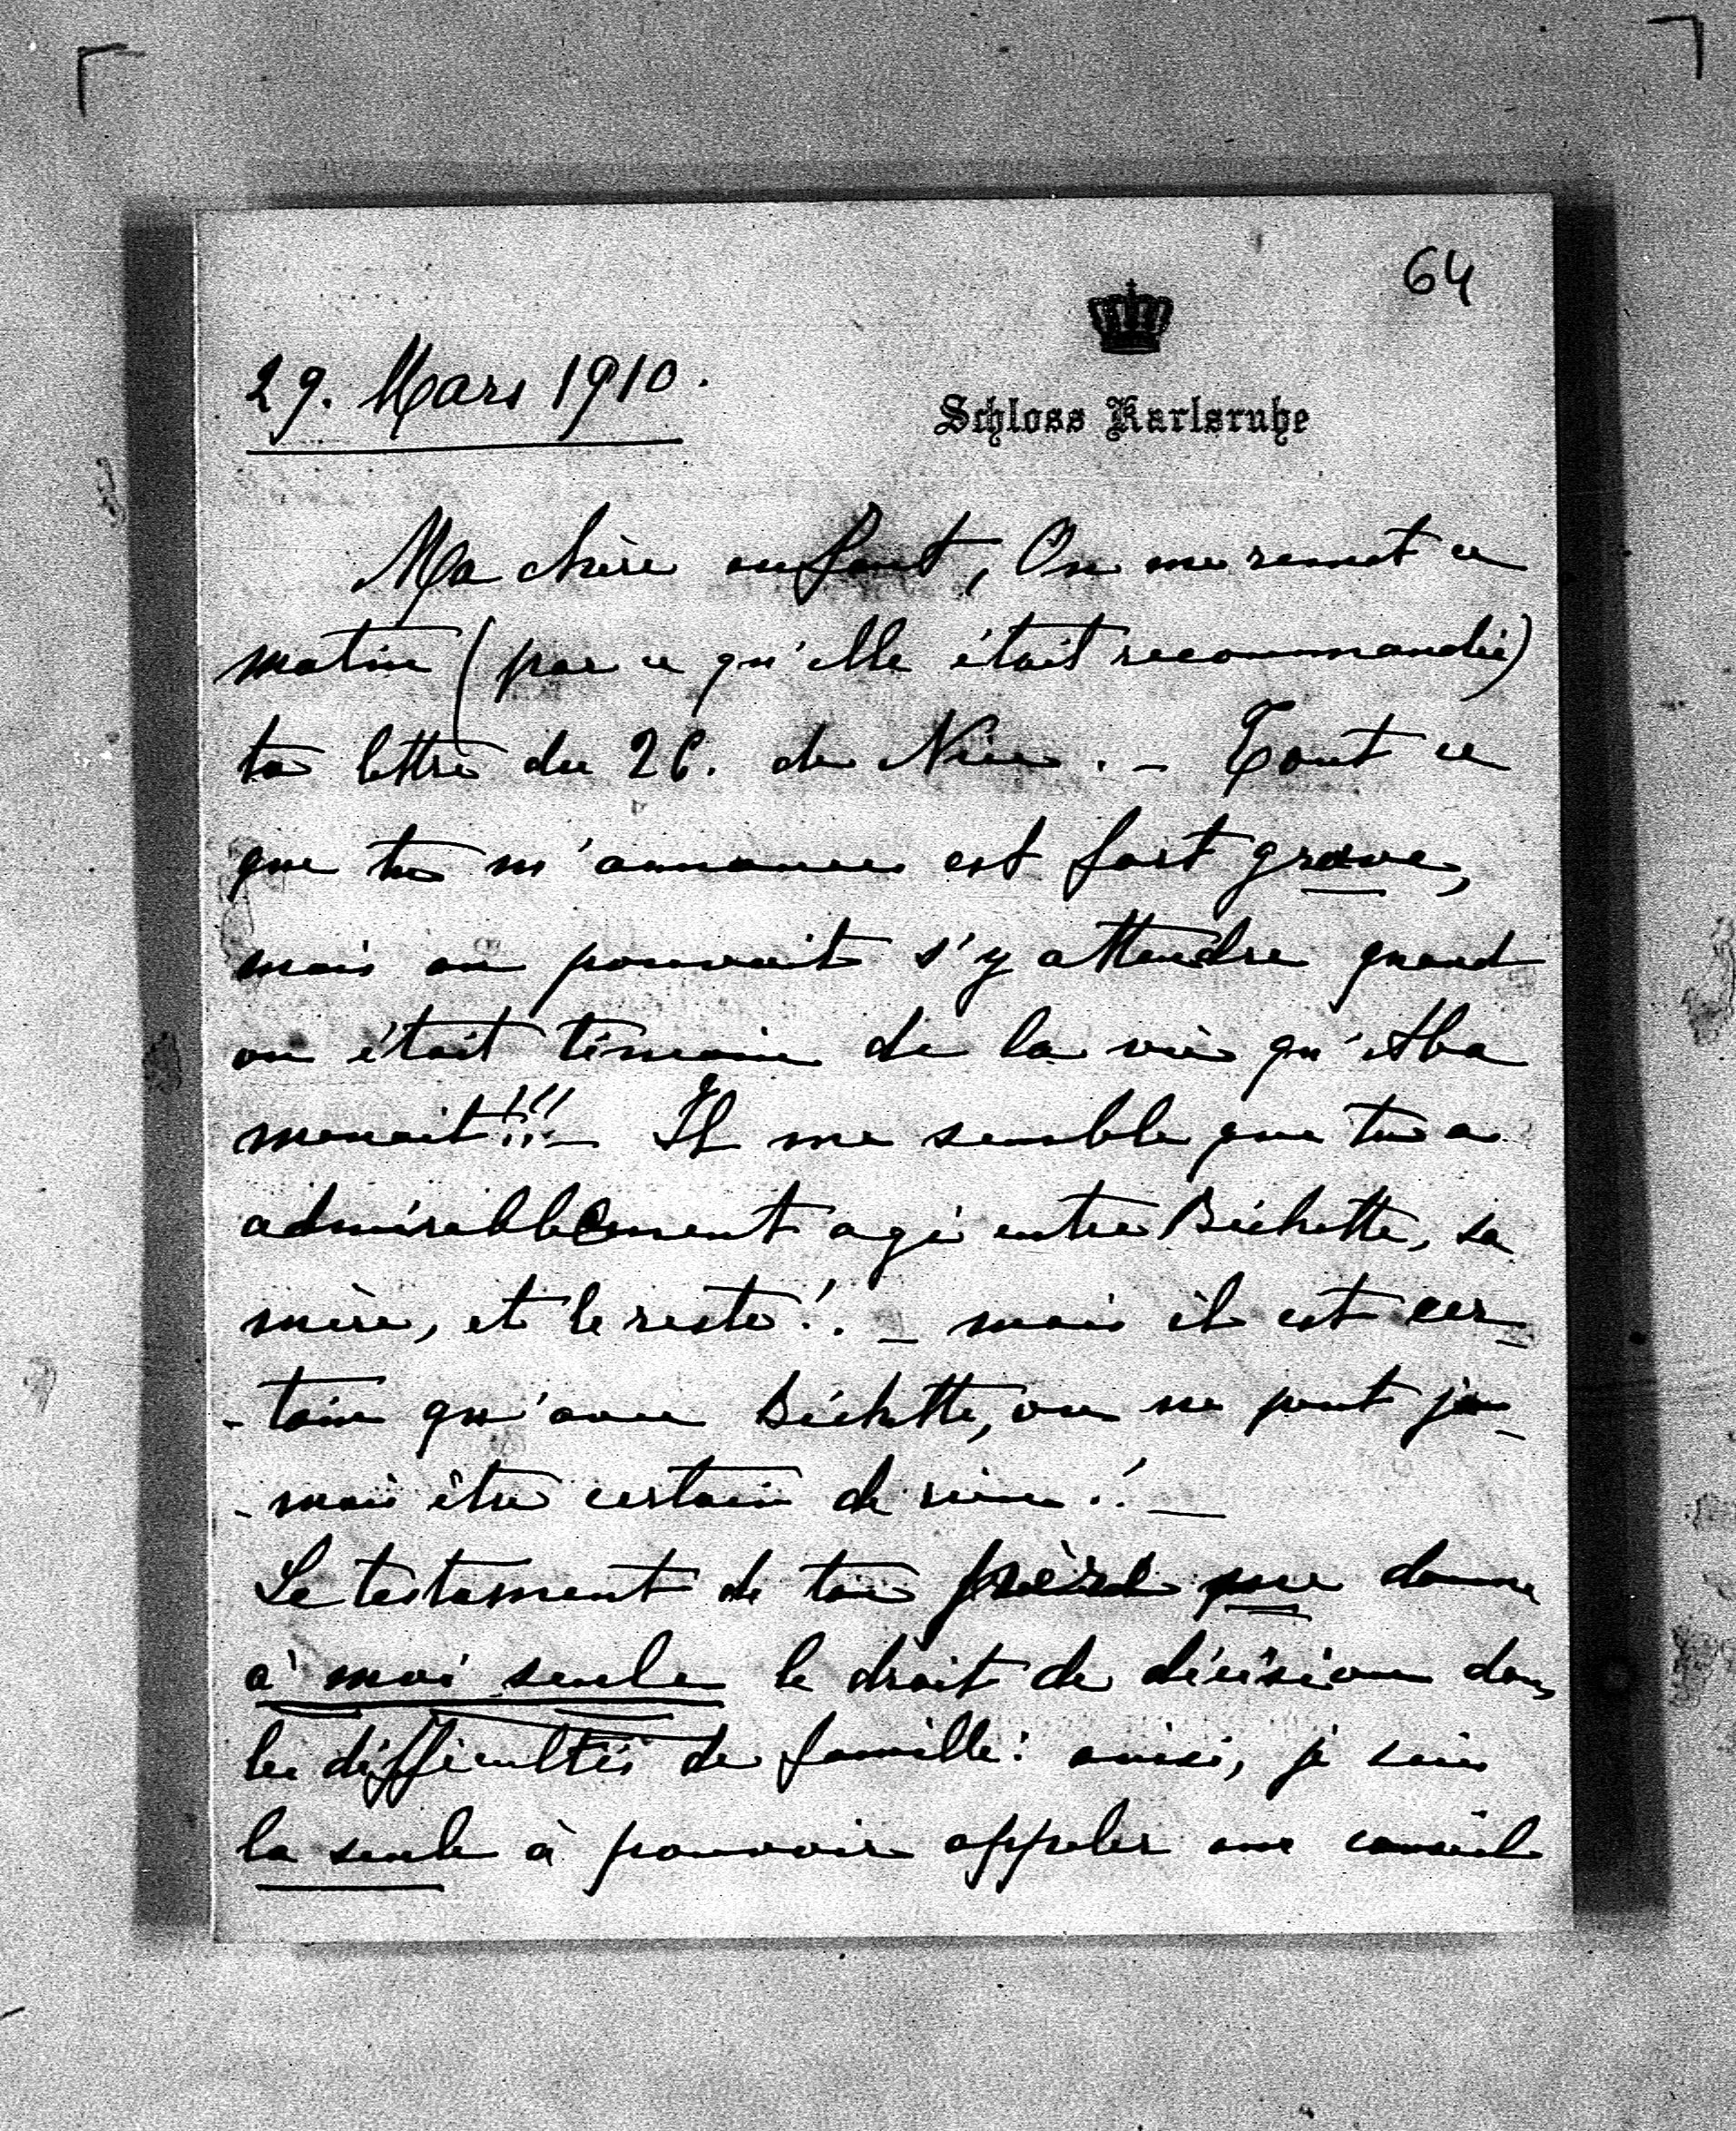 64
29. Mars 1910.
Schloss Karlsruhe
Ma chère enfant, On me remet ce
matin (par ce qu'elle était recommandée)
ta lettre du 26. de Nice. – Tout ce
que tu m'annonces est fort grave,
mais on pouvait s'y attendre quand
on était témoin de la vie qu'Aba
menait!!! – Il me semble que tu a
admirablement agi entre Béchette, sa
mère, et le reste!. – mais il est cer-
- tain qu'avec Béchette, on ne peut ja-
- mais être certain de rien!. –
Le testament de ton père me donne
à moi seule le droit de décision dans
les difficultés de famille: ainsi, je suis
la seule à pouvoir appeler un conseil